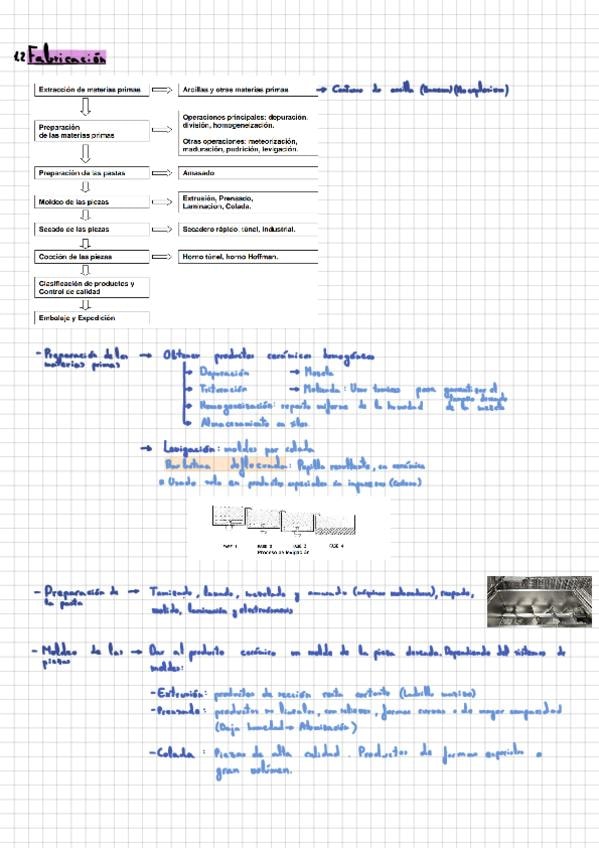 1.2 Fabricación
Extracción de materias primas
Arcillas y otras materias primas
de arcilla
Preparación
de las materias primas
Operaciones principales: depuración,
división, homogeneización.
Otras operaciones: meteorización,
maduración, pudrición, levigación.
Preparación de las pastas
Amasado
Moldeo de las piezas
Extrusión, Prensado,
Laminación, Colada.
Secado de las piezas
Secadero rápido, túnel, industrial.
Cocción de las piezas
Horno túnel, horno Hoffman.
Clasificación de productos y
Control de calidad
Embalaje y Expedición
- Preparación de las → Obtener productos cerámicos homogéneos
materias primas
Depuración → Mezcla
Trituración → Molienda: Usar para garantizar el
tamaño deseado
Homogeneización: reparto uniforme de la humedad de la mezcla
Almacenamiento en silos
→ Levigación: moldeo por colada
Barbotina desfloculada: Papilla resultante, en cerámica
Usado solo en productos especiales
FASE 1 FASE 2 FASE 3 FASE 4
Proceso de levigación
- Preparación de → Tamizado, lavado, mezclado y amasado
la pasta
molido, laminación y
- Moldeo de las → Dar al producto cerámico un molde de la pieza deseada. Dependiendo del sistema de
piezas
moldeo:
- Extrusión: productos de sección recta constante (Ladrillo macizo)
- Prensado: productos no lineales, con relieves, formas curvas o de mayor compacidad
(Baja humedad → Atomización)
- Colada: Piezas de alta calidad. Productos de formas especiales o
gran volúmen.